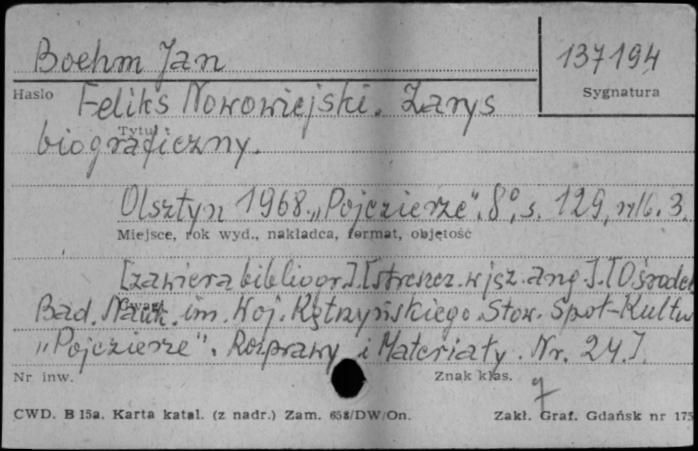 Boehm Jan
137194
Hasło
Sygnatura
Feliks Nowowiejski. Zarys
Tytuł
biograficzny.
Olsztyn 1968. „Pojezierze". 8°, s. 129, nlb. 3.
Miejsce, rok wyd., nakładca, format, objętość
[zawiera bibliogr.]. [streszcz. w jęz. ang.]. [Ośrodek
Uwagi
Bad. Nauk. im. Woj. Kętrzyńskiego. Stow. Społ-Kultu
„Pojezierze". Rozprawy i Materiały. Nr. 24].
Nr inw.
Znak klas.
CWD. B 15a. Karta katal. (z nadr.) Zam. 658/DW/On.
Zakł. Graf. Gdańsk nr 175